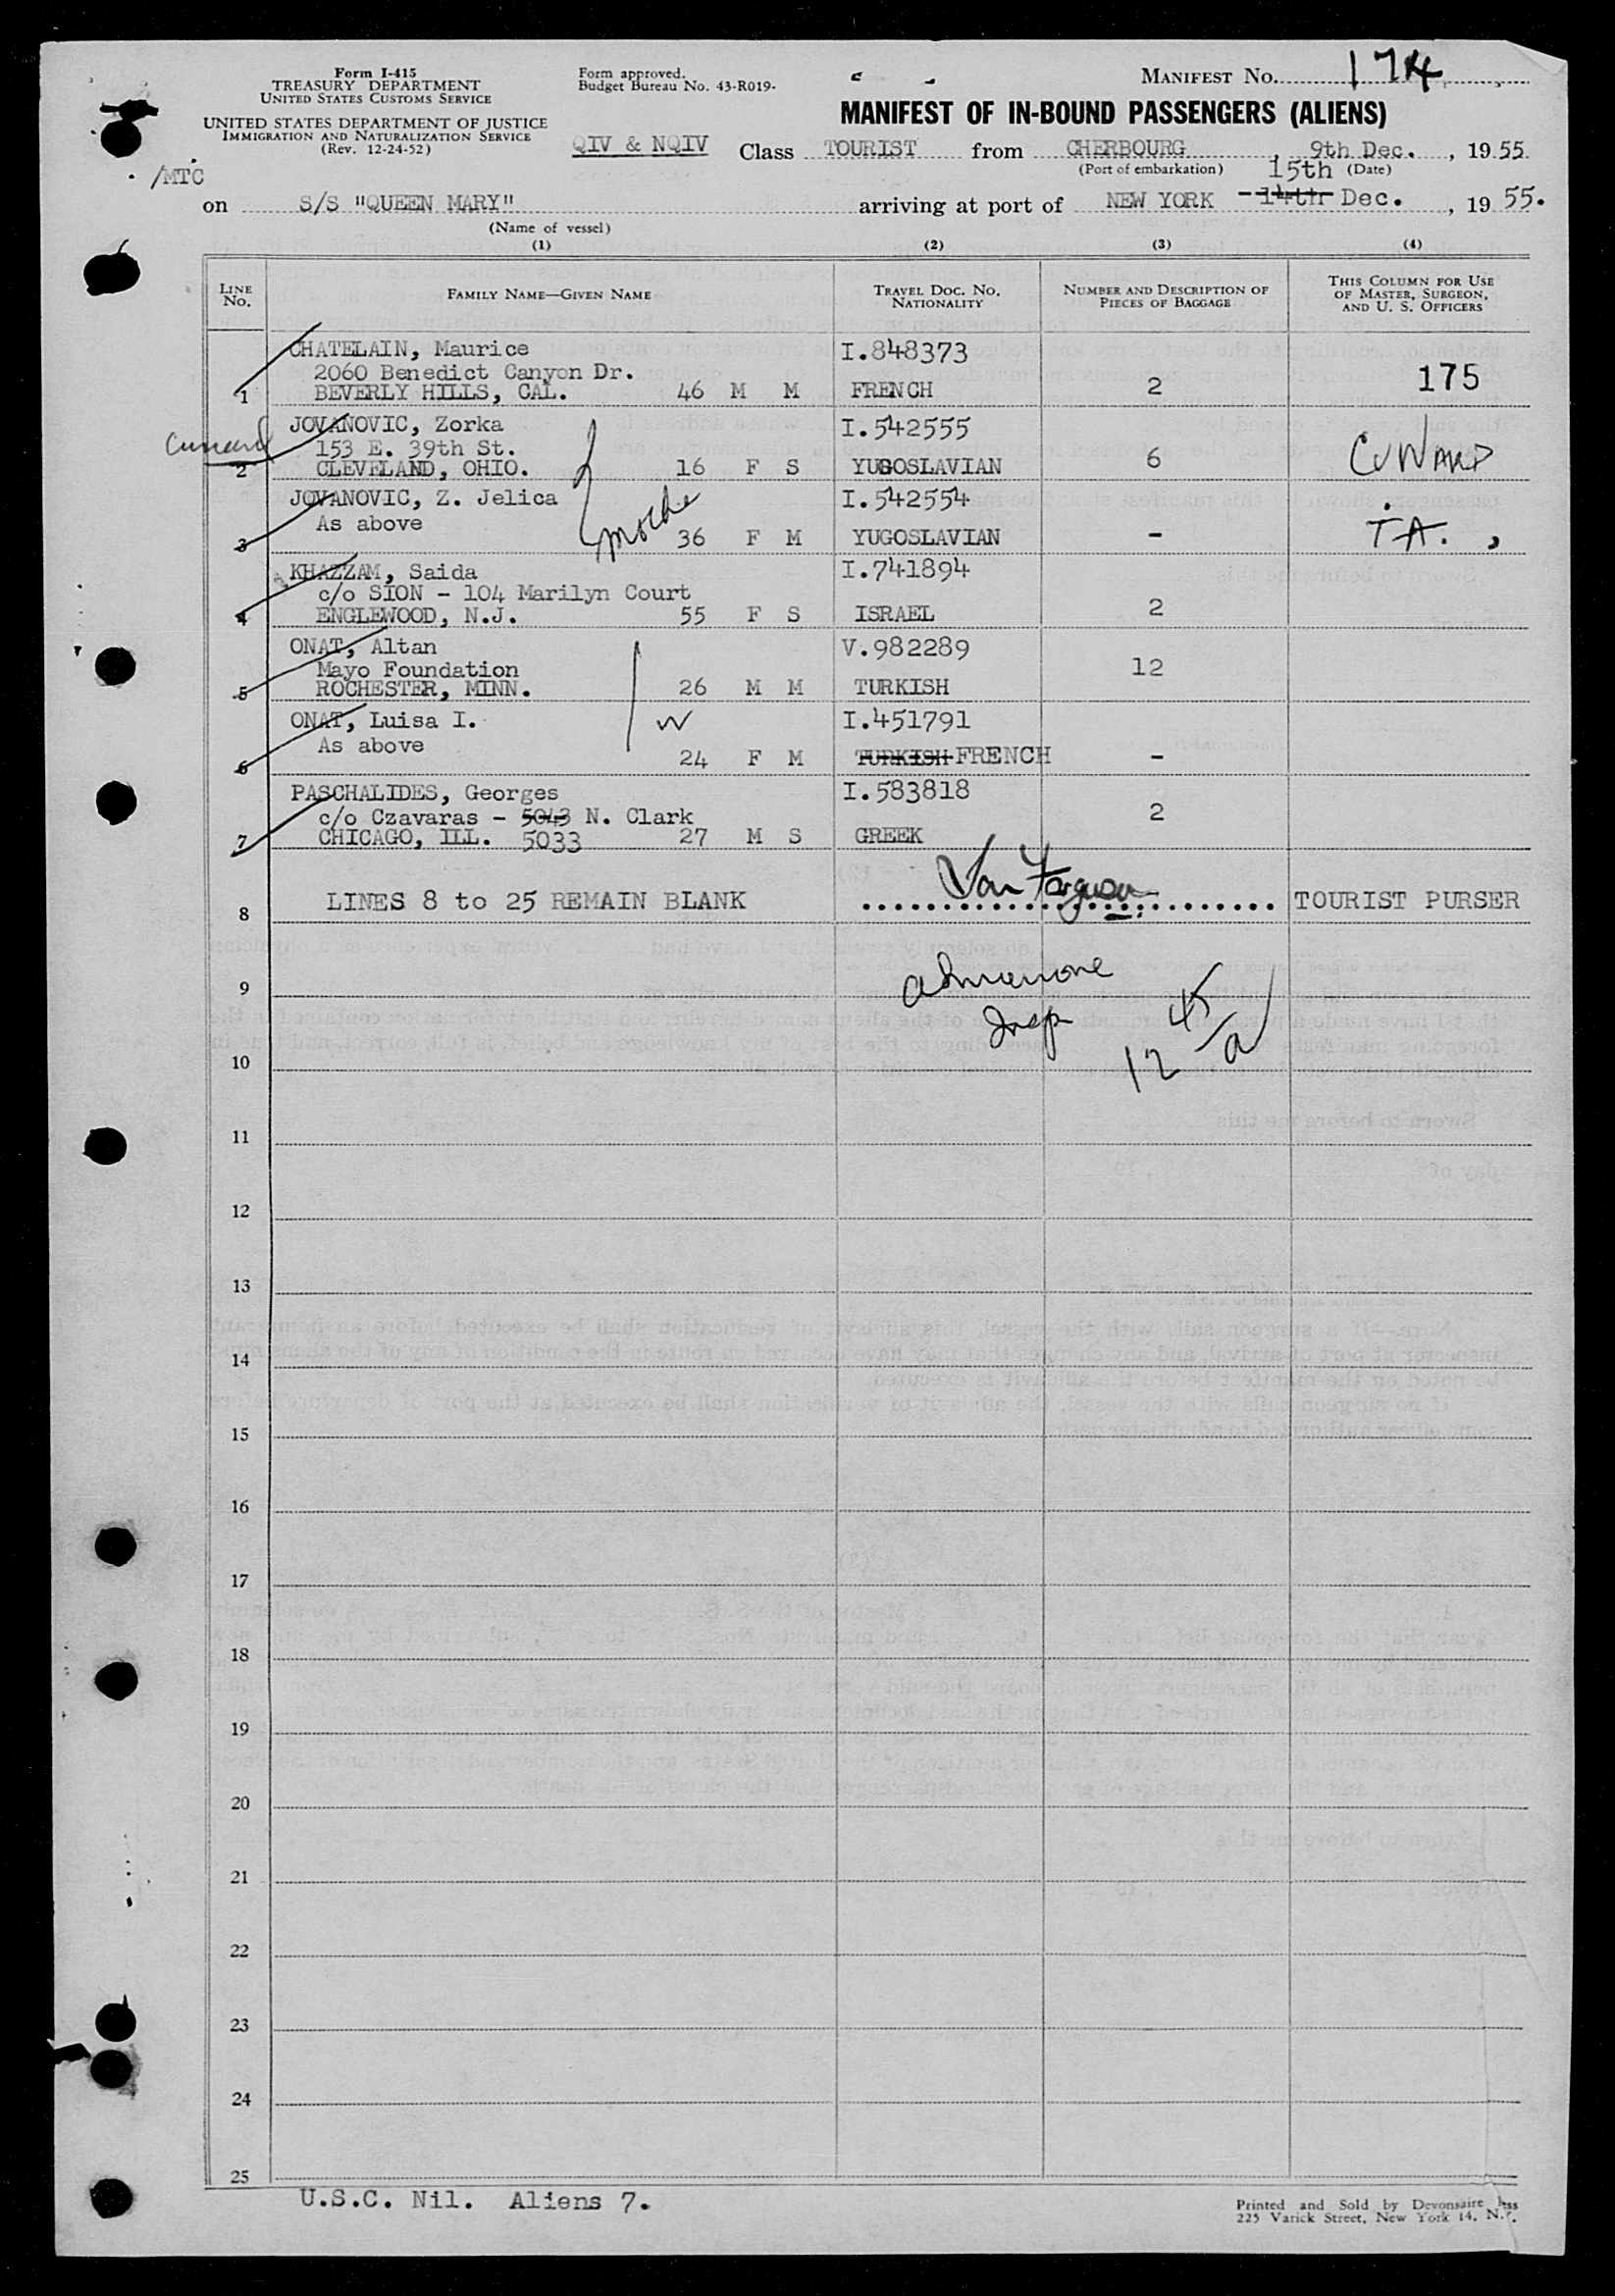 Form I-415
TREASURY DEPARTMENT
UNITED STATES CUSTOMS SERVICE
UNITED STATES DEPARTMENT OF JUSTICE
IMMIGRATION AND NATURALIZATION SERVICE
(Rev. 12-24-52)
Form approved.
Budget Bureau No. 43-R019-
MANIFEST No. 174
MANIFEST OF IN-BOUND PASSENGERS (ALIENS)
/MTC
QIV & NQIV Class TOURIST from CHERBOURG, 9th Dec., 1955
(Port of embarkation) 15th (Date)
on S/S "QUEEN MARY" arriving at port of NEW YORK 14th Dec., 1955.
(Name of vessel)
(1) (2) (3) (4)
LINE No. FAMILY NAME—GIVEN NAME TRAVEL DOC. No. NATIONALITY NUMBER AND DESCRIPTION OF PIECES OF BAGGAGE THIS COLUMN FOR USE OF MASTER, SURGEON, AND U. S. OFFICERS
CHATELAIN, Maurice I.848373
2060 Benedict Canyon Dr.
1 BEVERLY HILLS, CAL. 46 M M FRENCH 2 175
JOVANOVIC, Zorka I.542555
Cunard 153 E. 39th St.
2 CLEVELAND, OHIO. 16 F S YUGOSLAVIAN 6 CUNARD
JOVANOVIC, Z. Jelica I.542554
As above
3 36 F M YUGOSLAVIAN - T.A.
KHAZZAM, Saida I.741894
c/o SION - 104 Marilyn Court
4 ENGLEWOOD, N.J. 55 F S ISRAEL 2
ONAT, Altan V.982289
Mayo Foundation 12
5 ROCHESTER, MINN. 26 M M TURKISH
ONAT, Luisa I. W I.451791
As above
6 24 F M TURKISH FRENCH -
PASCHALIDES, Georges I.583818
c/o Czavaras - 5043 N. Clark 2
7 CHICAGO, ILL. 5033 27 M S GREEK
8 LINES 8 to 25 REMAIN BLANK Ferguson TOURIST PURSER
9
Insp 45
10 12 a
11
12
13
14
15
16
17
18
19
20
21
22
23
24
25
U.S.C. Nil. Aliens 7.
Printed and Sold by Devonsaire
225 Varick Street, New York 14, N.Y.